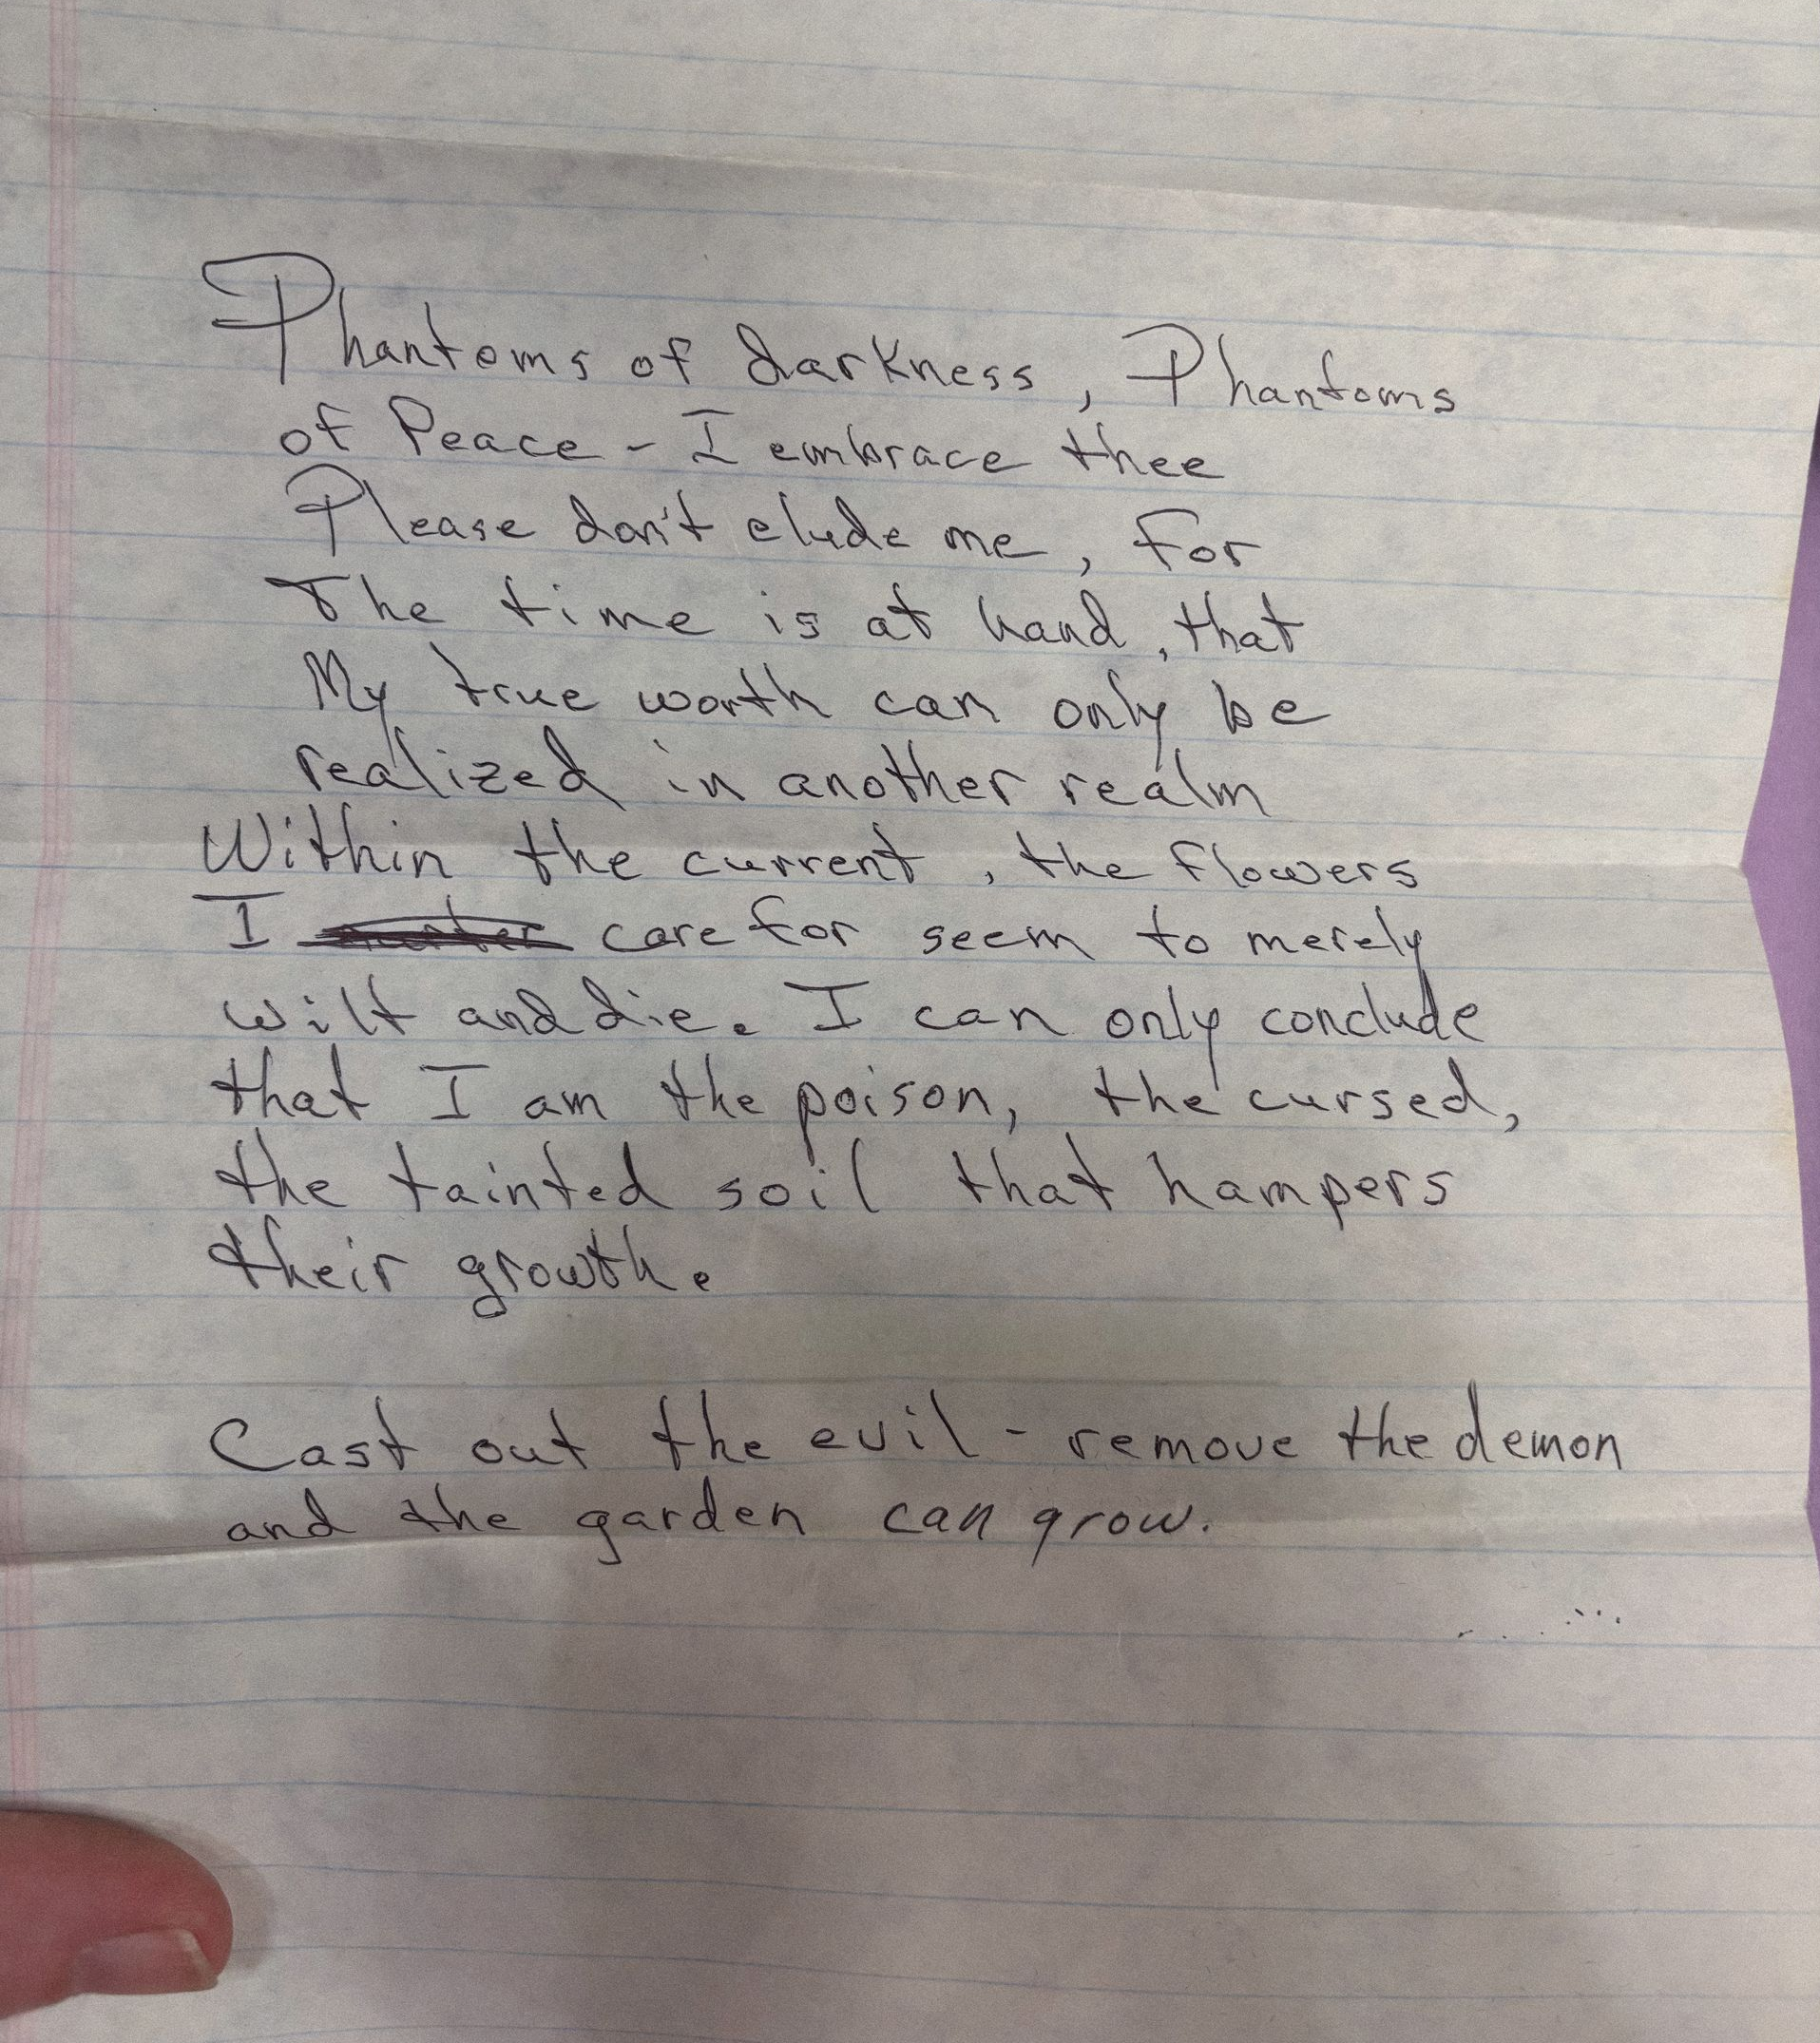 Phantoms of darkness, Phantoms
of Peace - I embrace thee
Please don't elude me, for
The time is at hand, that
My true worth can only be
realized in another realm
Within the current, the flowers
I care for seem to merely
wilt and die. I can only conclude
that I am the poison, the cursed,
the tainted soil that hampers
their growth.
Cast out the evil - remove the demon
and the garden can grow.